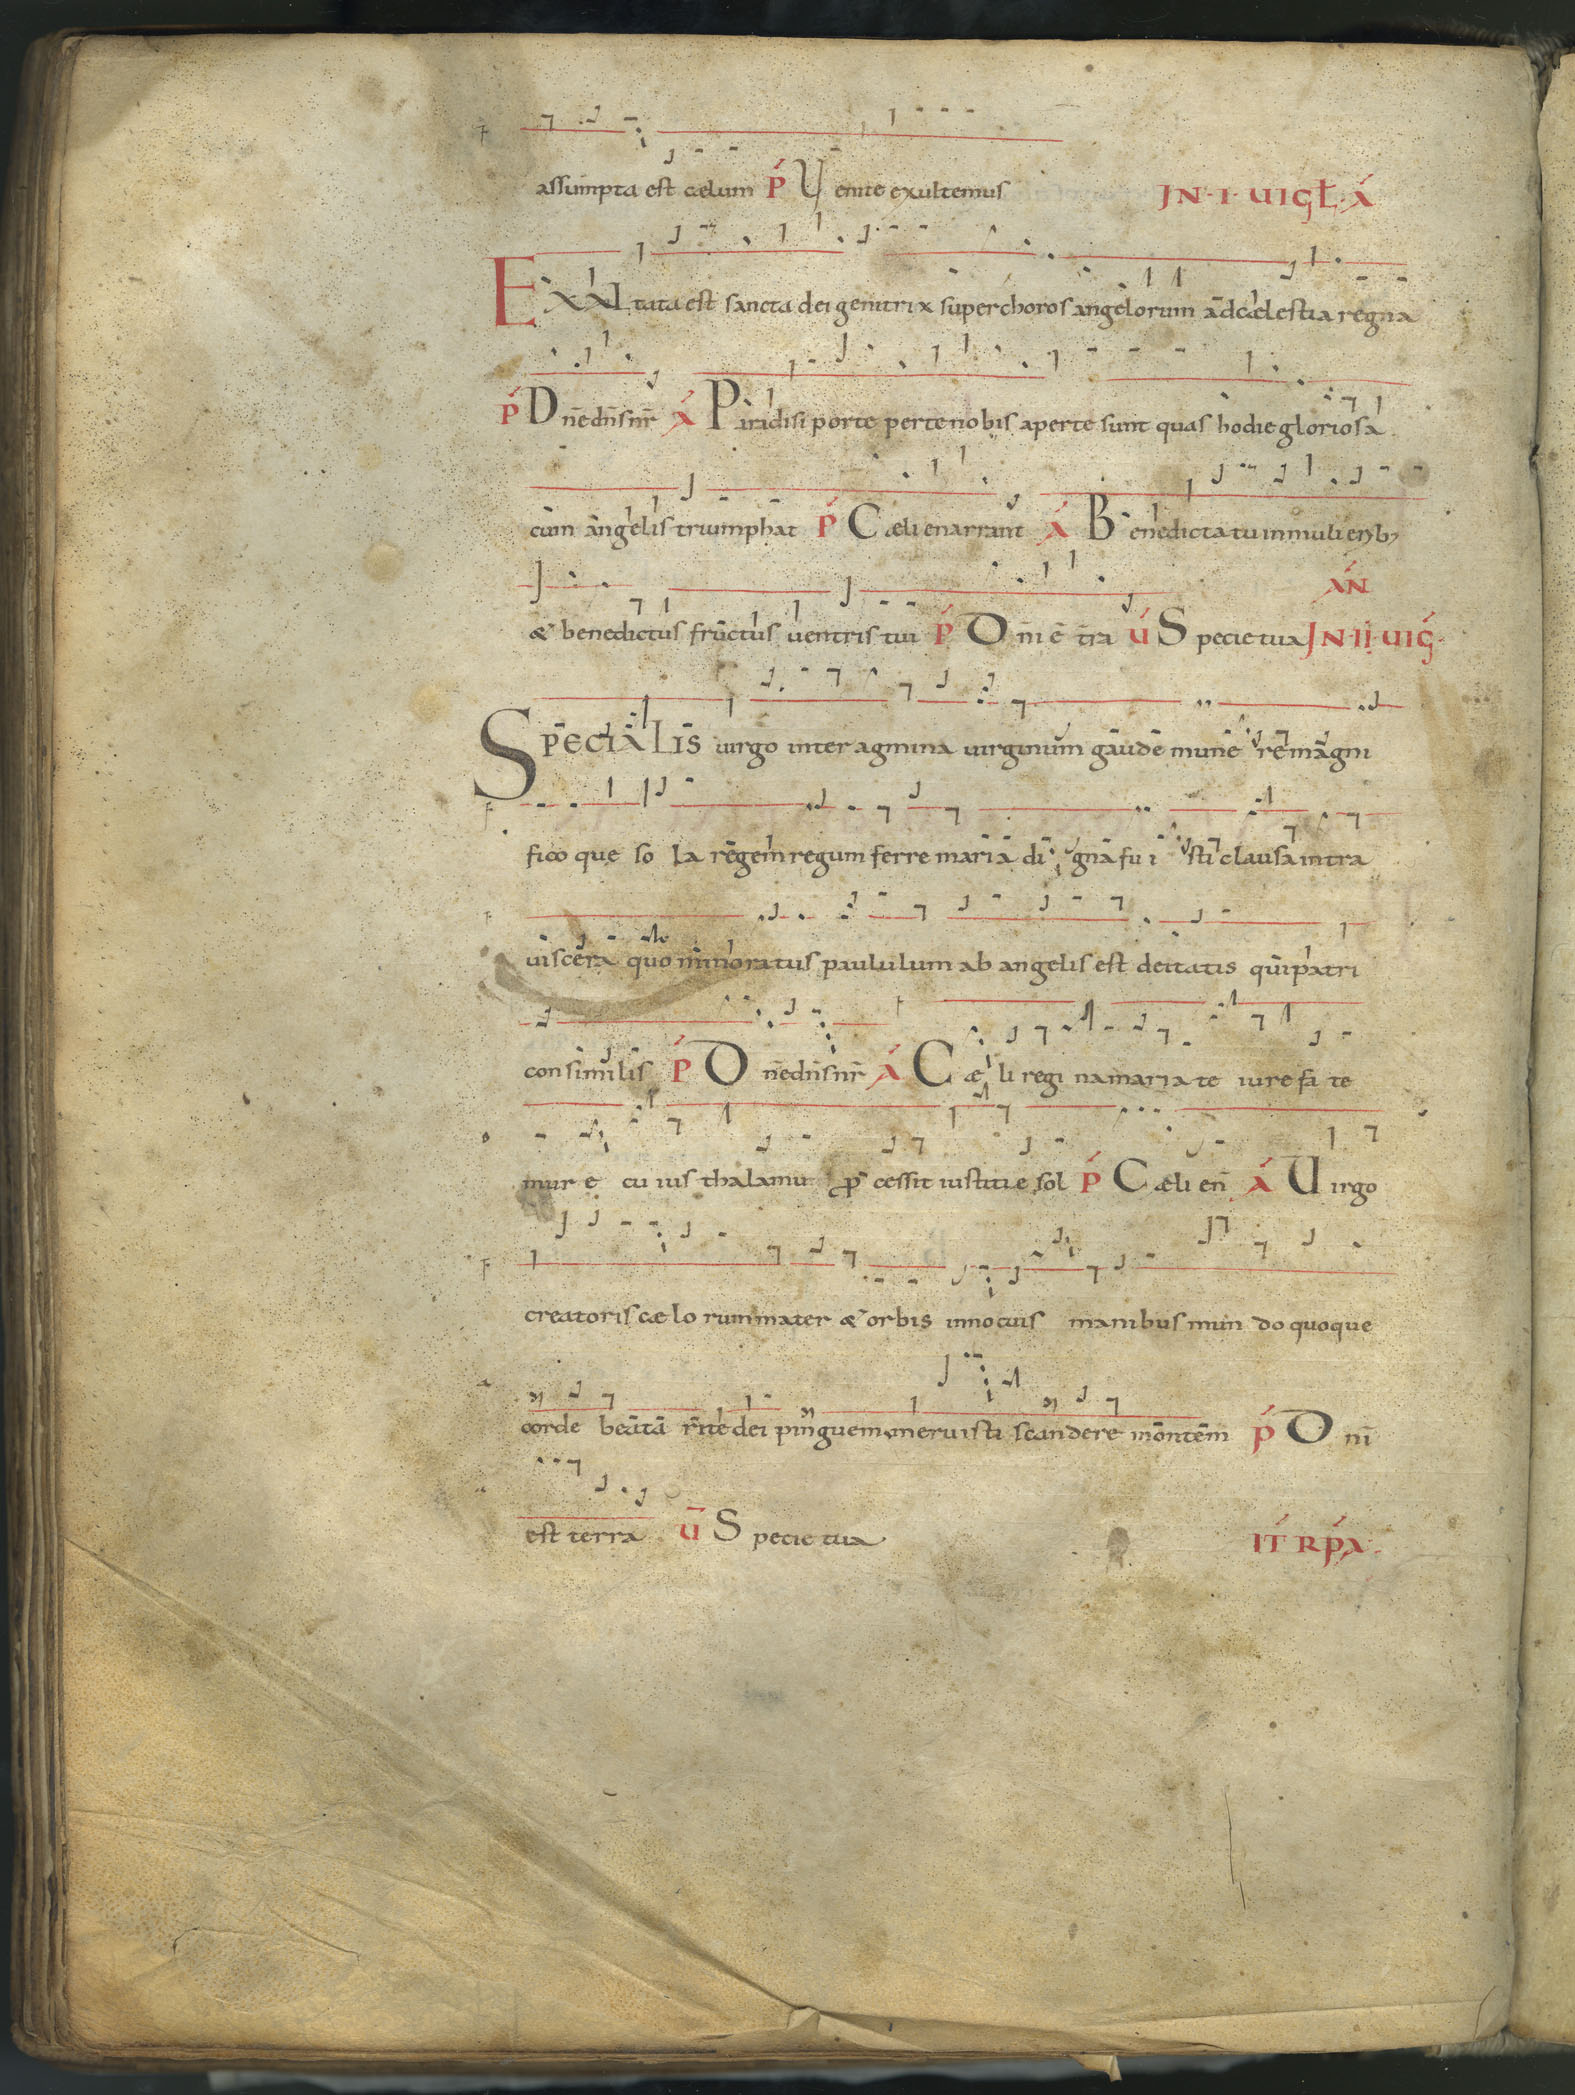 assumpta est cælum P̄ Uenite exultemus IN·I·UIGŁ·A
EXALtata est sancta dei genitrix super choros angelorum ad cælestia regna
P̄ Dn̄e dn̄s nr̄ A Paradisi porte per te nobis aperte sunt quas hodie gloriosa
cum angelis triumphat P̄ Cæli enarrant A Benedicta tu in mulierib;
AN
& benedictus fructus uentris tui P̄ Dn̄i ē t̄ra U Specie tua IN·II·UIG·
SPECIALIS uirgo inter agmina uirginum gaude mune re magni
fico que so la regem regum ferre maria di gna fu i sti clausa intra
uiscera quo minoratus paululum ab angelis est deitatis qui patri
consimilis P̄ Dn̄e dn̄s nr̄ A Cæ li regi na maria te iure fa te
mur e cu ius thalamu p̄ cessit iustitie sol P̄ Cæli en̄ A Uirgo
creatoris cæ lo rum mater & orbis innocuis manibus mun do quoque
corde beata rite dei pinguem meruisti scandere montem P̄ Dn̄i
est terra U Specie tua IT RPA·